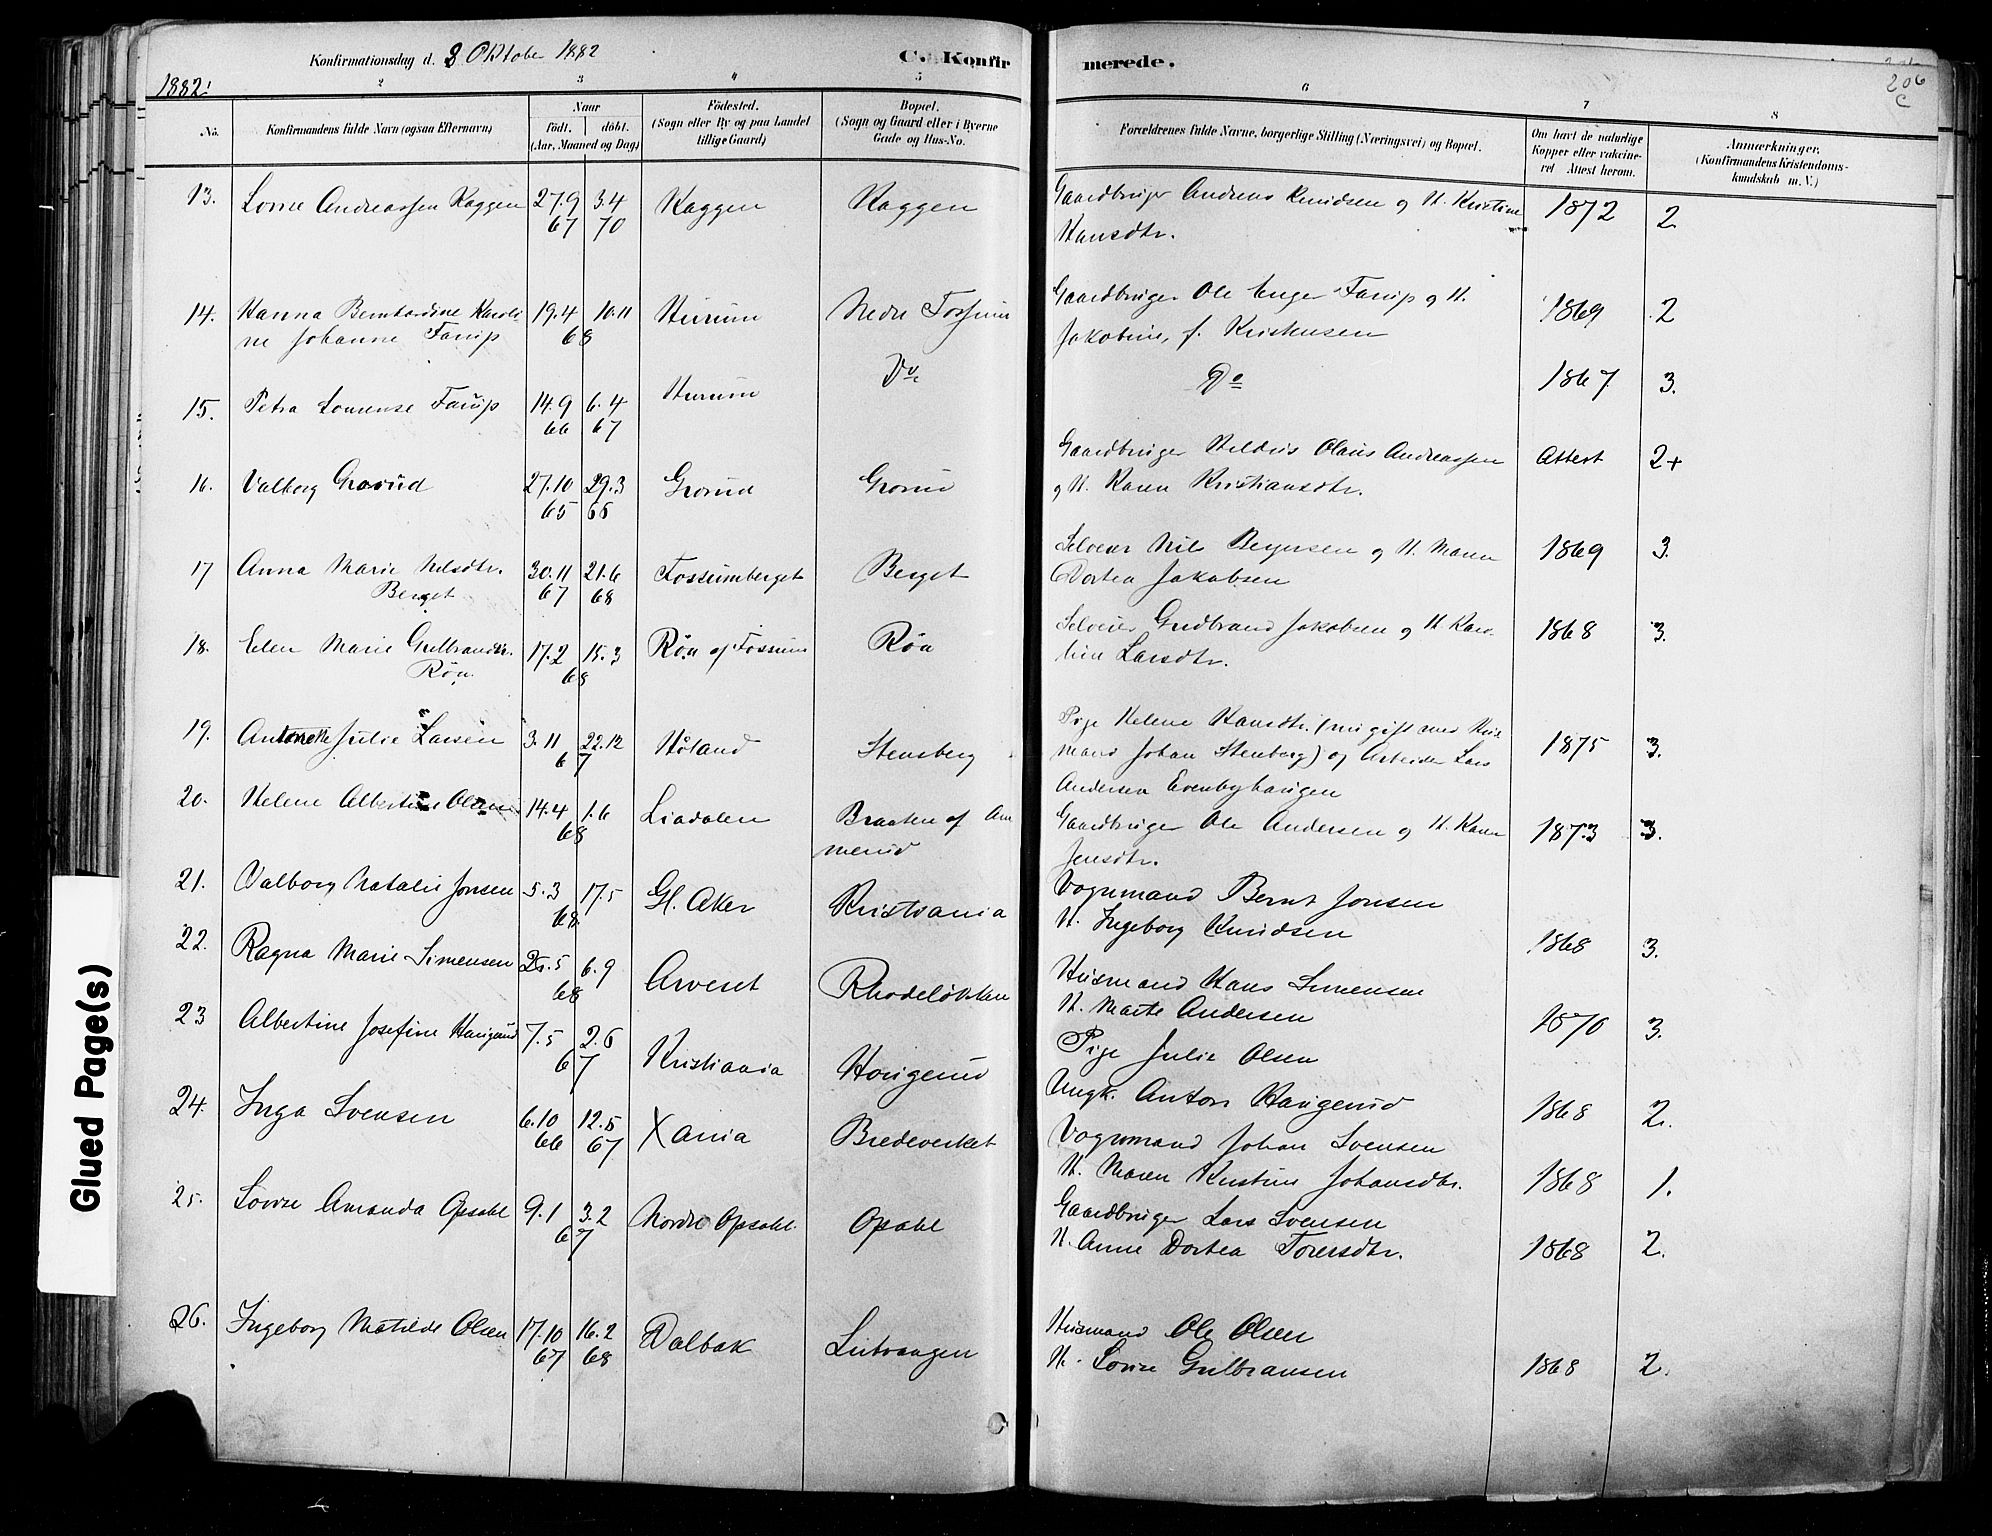 Konfirmationsdag d. 8 Oktober 1882
C. Konfir
merede.
206
C
1882:
2
3
4
5
6
7
8
No.
Konfirmandens fulde Navn (ogsaa Efternavn)
Naar
födt. döbt.
(Aar, Maaned og Dag)
Födested.
(Sogn eller By og paa Landet
tillige Gaard)
Bopæl.
(Sogn og Gaard eller i Byerne
Gade og Hus-No.
Forældrenes fulde Navne, borgerlige Stilling (Næringsvei) og Bopæl.
Om havt de naturlige
Kopper eller vakcine-
ret Attest herom.
Anmærkninger.
(Konfirmandens Kristendoms-
kundskab m. V.)
13. Lovise Andreassen Kaggen 27.9 3.4 Kaggen Kaggen Gaardbruger Andreas Knudsen og H. Kristine 1872 2
67 70 Hansdtr.
14. Hanna Bernhardine Karoli- 19.4 10.11 Hurum Nedre Fossum Gaardbruger Ole Unger Farup og H. 1869 2
ne Johanne Farup 68 Jakobine, f. Kristensen
15. Petra Lovense Farup 14.9 6.4 Hurum Do Do 1867 3.
66 67
16. Valborg Grorud 27.10 29.3 Grorud Grorud Gaardbruger Olaus Andreassen Attest 2+
65 66 og H. Karen Kristiansdtr.
17 Anna Marie Nilsdtr. 30.11 21.6 Fossumberget Berget Selveier Nils Bergersen og H. Maren 1869 3.
Berget 67 68 Dortea Jakobsen
18. Elen Marie Gulbrandsdr. 17.2 15.3 Röa af Fossum Röa Selveier Gudbrand Jakobsen og H. Karo- 1868 3.
Röa 68 line Larsdtr.
19. Antonette Julie Larsen 3.11 22.12 Höland Stensberg Pige Helene Hansdtr. (nu gift med Hus- 1875 3.
67 mand Johan Stenberg) og Arbeider Lars
Andersen Evenbyhaugen
20. Helene Albertine Olsen 14.4 1.6 Liadalen Braaten af Am Gaardbruger Ole Andersen og H. Karen 1873 3.
68 merud Jensdtr.
21. Valborg Natalie Jonsen 5.3 17.5 Gl. Aker Kristiania Vognmand Bernt Jonsen
68 H. Ingeborg Knudsen 1868 3.
22. Ragna Marie Simensen 25.5 6.9 Arveset Rhodelökken Husmand Hans Simensen
68 H. Marte Andersen 1870 3.
23 Albertine Josefine Haugerud 7.5 2.6 Kristiania Haugerud Pige Julie Olsen
67 Ungk. Anton Haugerud 1868 2.
24. Inga Svensen 6.10 12.5 Xania Bredeverket Vognmand Johan Svensen
66 67 H. Maren Kristine Johansdtr. 1868 1.
25. Lovise Amanda Opsahl 9.1 3.2 Nordre Opsahl Opsahl Gaardbruger Lars Svensen
67 H. Anne Dortea Toresdtr. 1868 2.
26. Ingeborg Matilde Olsen 17.10 16.2 Dalbak Lutvangen Husmand Ole Olsen
67 68 H. Lovise Gulbransen 1868 2.
Glued Page(s)